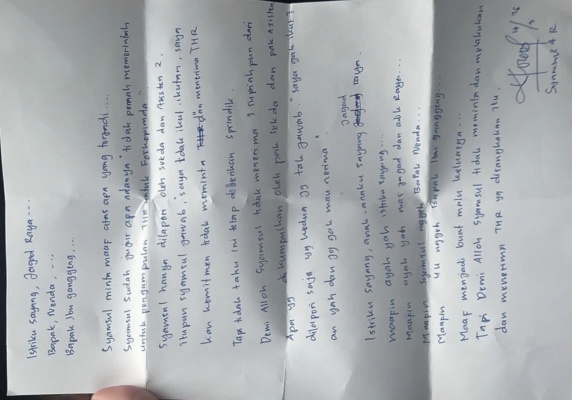 Istriku sayang, Jagad Raya ---
Bapak, Nenda, ....
Bapak ibu ganggeng ...
Syamsul minta maaf atas apa yang terjadi...
Syamsul sudah jujur apa adanya "tidak pernah memerintah
untuk pengumpulan THR untuk Forkopimda"
Syamsul hanya dilapori oleh sekda dan Asisten 2.
Itupun syamsul jawab, "saya tidak ikut ikutan, saya
kan komitmen tidak meminta dan menerima THR
Tapi tidak tahu ini tetap diberikan sprindik.
Demi Alloh Syamsul tidak menerima 1 rupiahpun dari
Apa yg dikumpulkan oleh pak sekda dan pak Asisten
dilapori saja yg kedua yg tak jawab "saya gak ikut 2
an yah dan yg gak mau nerima"
Istriku sayang, anak-anakku sayang Jagad raya.
maapin ayah yah istriku sayang...
Maapin ayah yah mas jagad dan adik Raya...
Maapin Syamsul nggeh Bapak Nenda...
Maapin nggeh Bapak Ibu ganggeng...
Maaf menjadi buat malu keluarga...
Tapi Demi Alloh Syamsul tidak meminta dan melakukan
dan menerima THR yg disangkakan itu.
Syamsul A R